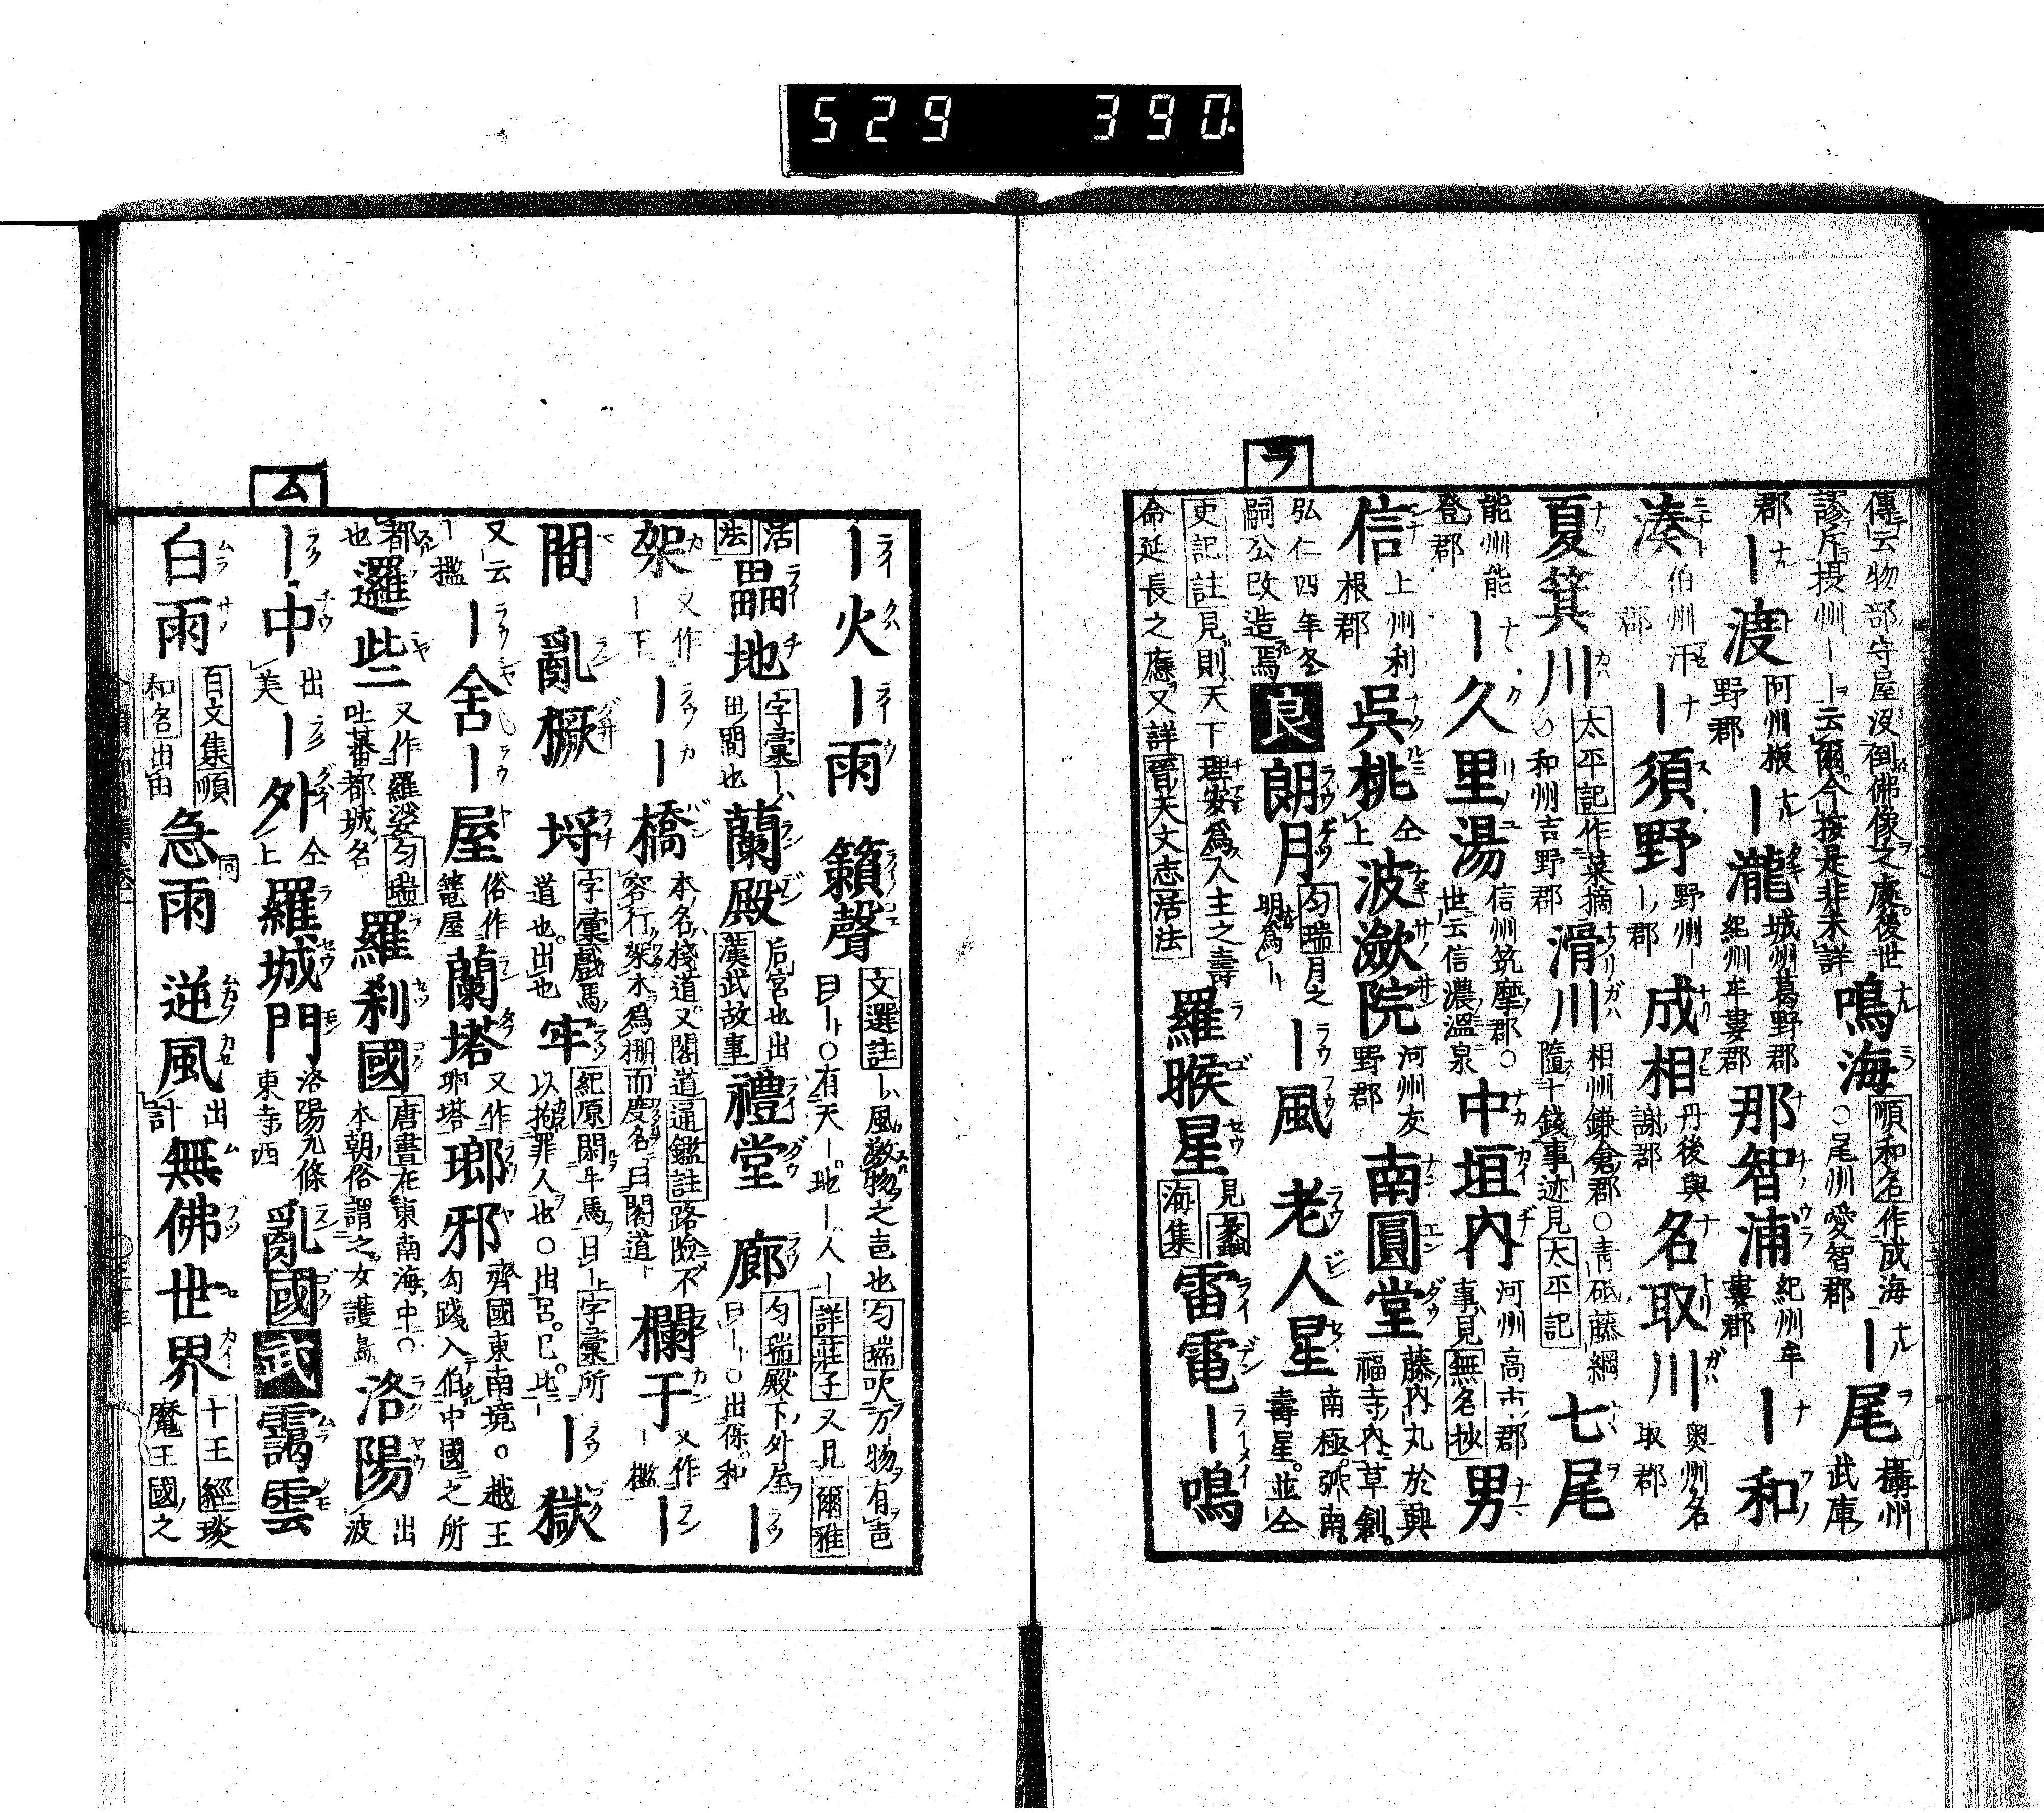 529 390
傳云物部守屋沒倒佛像之處後世
謬斥摂州｜｜云爾今按是非未詳
鳴海 順和名作成海○尾州愛智郡
｜尾 攝州武庫郡
｜渡 阿州板野郡
｜瀧 城州葛野郡 紀州牟婁郡
那智浦 紀州牟婁郡
｜和
湊 伯州汗郡
｜須野 野州｜｜郡
成相 丹後與謝郡
名取川 奥州名取郡
夏箕川 太平記作菜摘○和州吉野郡
滑川 相州鎌倉郡○青砥藤綱隨十錢事迹見太平記
七尾 能州能登郡
｜久里湯 信州筑摩郡○世云信濃溫泉
中垣內 河州高市郡 事見無名抄
男信 上州利根郡
呉桃 仝上
波瀲院 河州友野郡
南圓堂 藤內丸於興福寺內草創。弘仁四年冬嗣公改造焉
ラ
良
朗月 匀瑞月之明爲｜｜
｜風
老人星 南極。弧南。壽星。並仝 史記註見則天下理安爲人主之壽命延長之應又詳晉天文志活法
羅睺星 見蠡海集
雷電
｜鳴
｜火
｜雨
籟聲 文選註｜ハ風激物之音也匀瑞吹万物有音曰｜○有天｜。地｜人｜詳莊子又見爾雅活法
畾地 字彙｜ハ田間也
蘭殿 后宮也出漢武故事
禮堂
廊 匀瑞殿下外屋曰｜｜○出係。和
｜架 又作｜下
｜｜橋 本名棧道又閣道通鑑註路險不容行架木爲棚而度名曰閣道
欄干 又作｜檻
｜間
亂橛
埒 字彙戲馬道也。出也
牢 紀原閑牛馬曰｜字彙所以拘罪人也○出呂。巳。比
｜獄 又云｜檻
｜舍
｜屋 俗作篭屋
蘭塔 又作卵塔
瑯邪 齊國東南境。越王勾踐入伯中國之所都也
邏些 又作羅娑匀瑞吐蕃都城名
羅刹國 唐書在東南海中○本朝俗謂之女護島
洛陽 出波
｜中 出美
｜外 仝上
羅城門 洛陽九條東寺西
亂國
ム
武
靄雲
白雨 百文集順和名出由
急雨 同
逆風 出計
無佛世界 十王經琰魔王國之